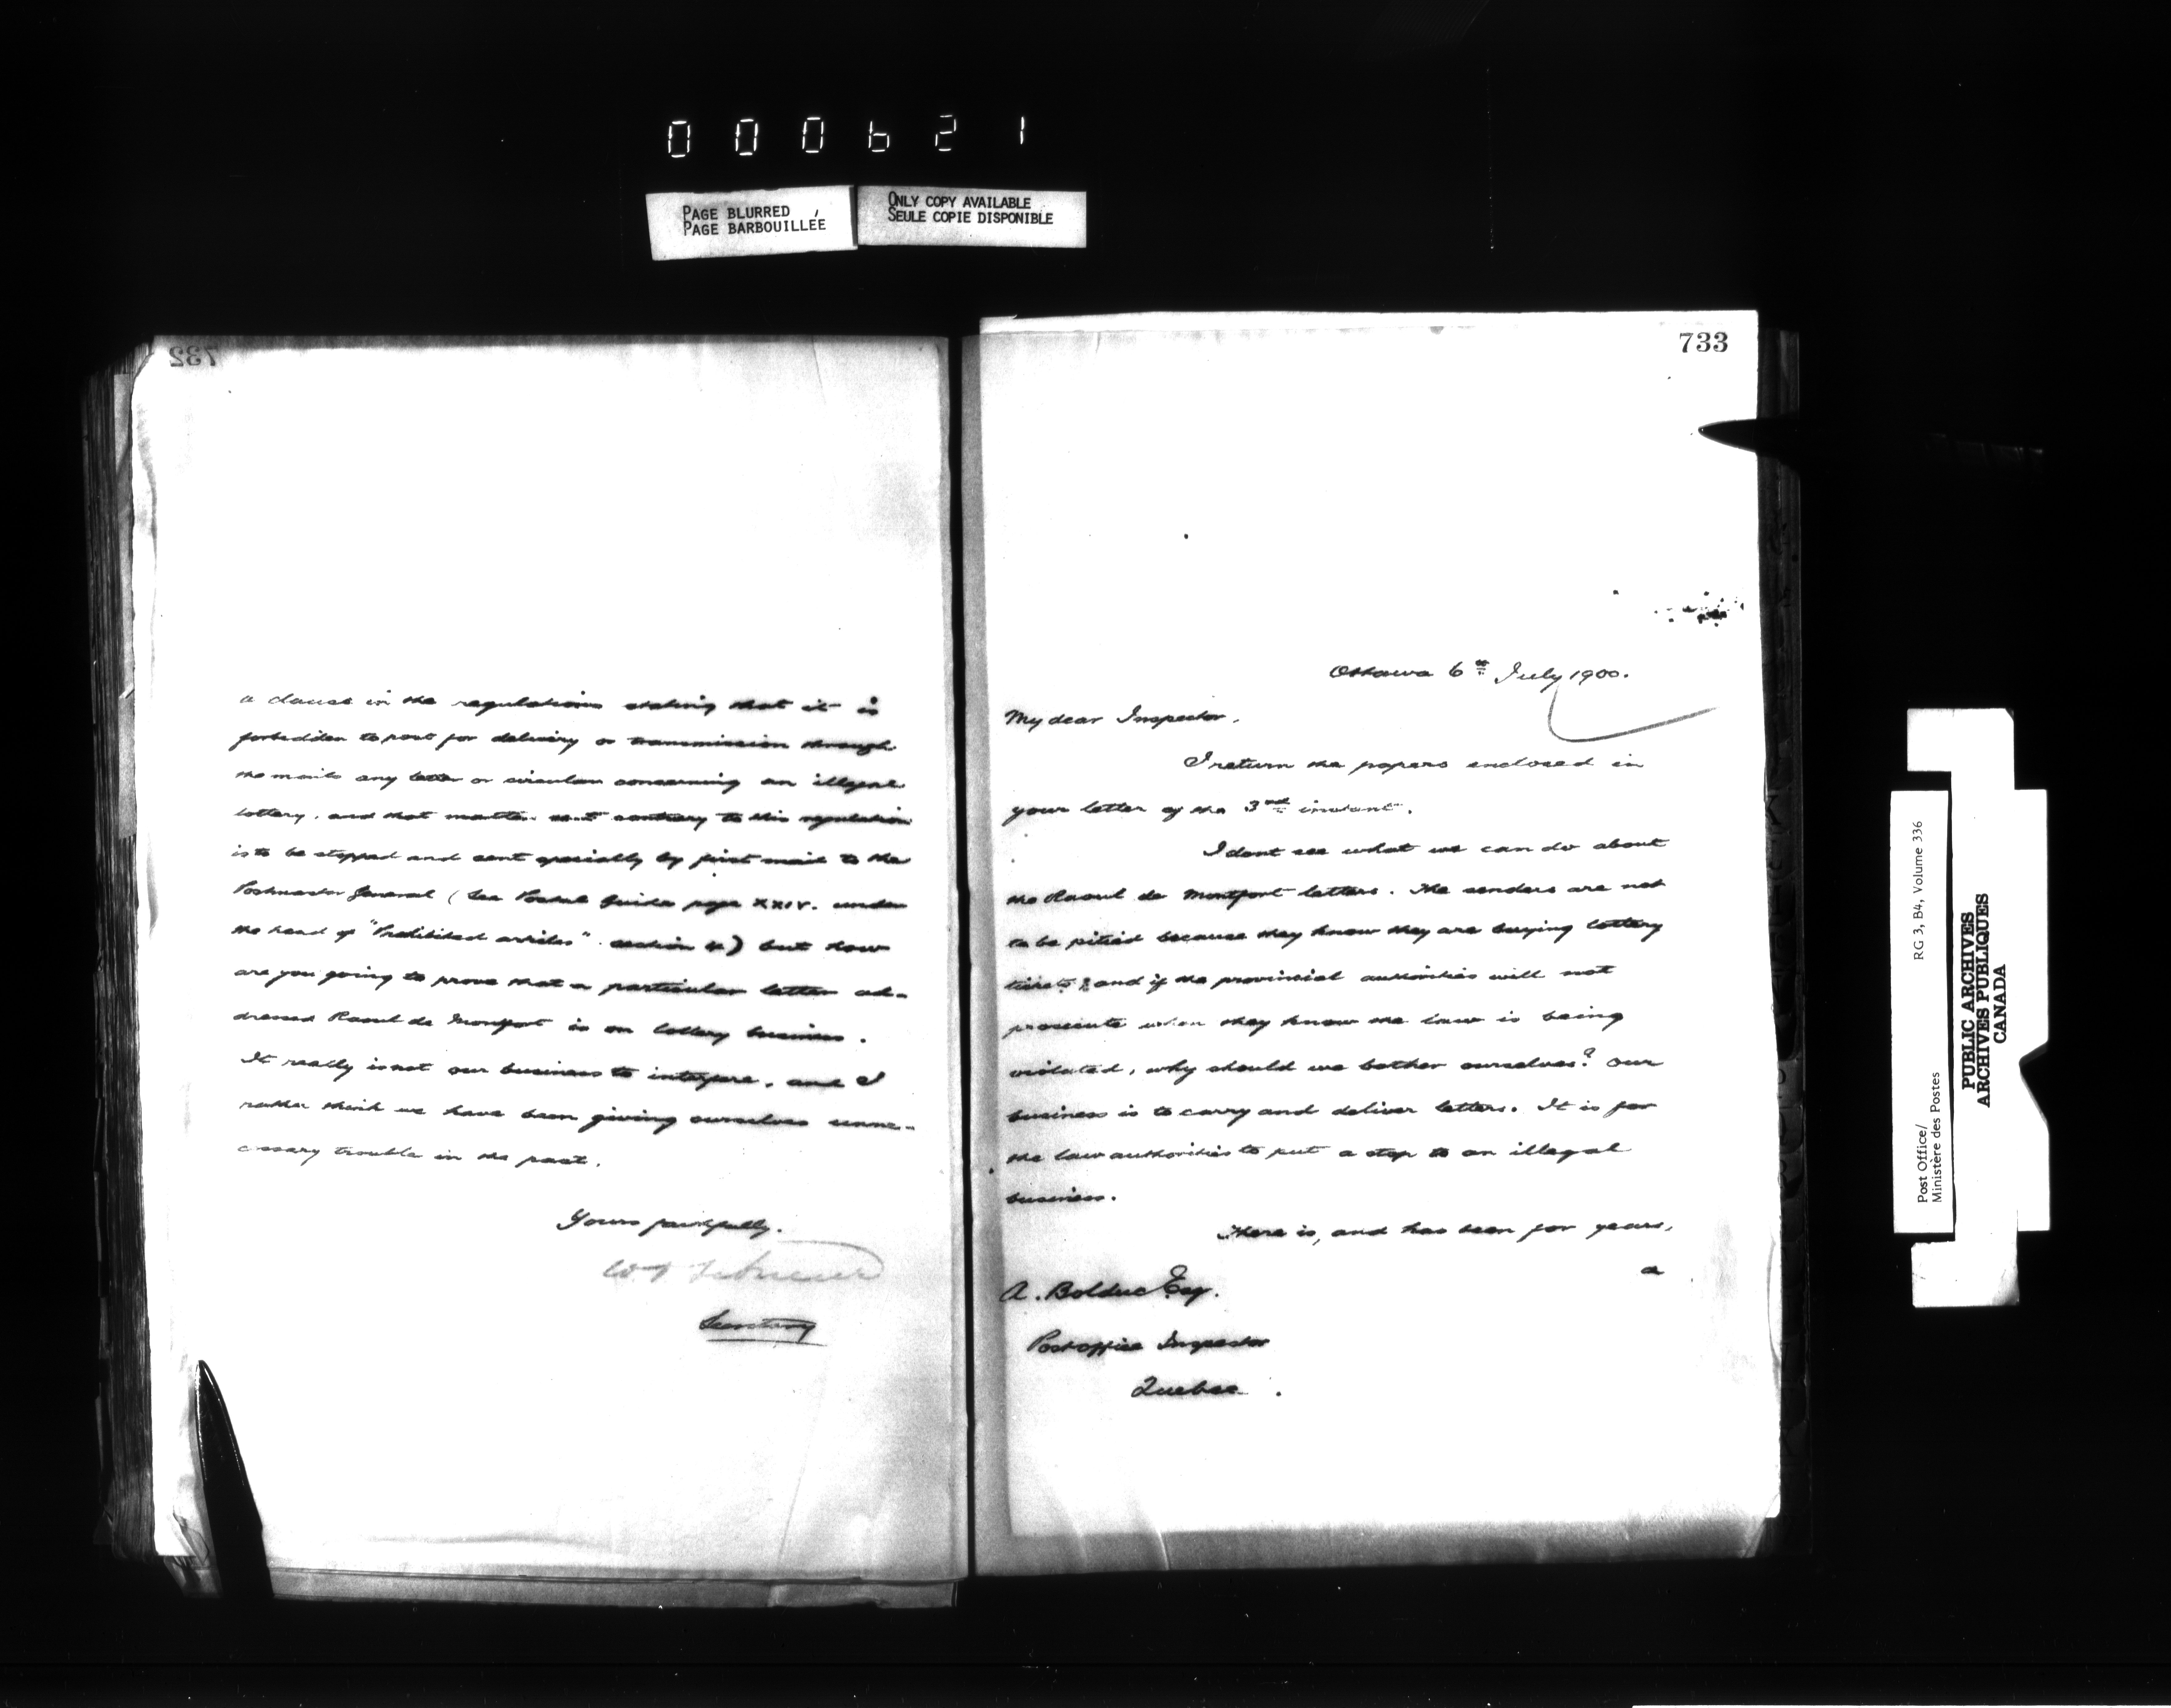 000621
PAGE BLURRED
PAGE BARBOUILLÉE
ONLY COPY AVAILABLE
SEULE COPIE DISPONIBLE
732
a clause in the regulations stating that it is
forbidden to post for delivery or transmission through
the mails any letter or circular concerning an illegal
lottery, and that matter sent contrary to this regulation
is to be stopped and sent specially by first mail to the
Postmaster General (See Postal Guide page XXIV. under
the head of "Prohibited articles" section 4) but how
are you going to prove that a particular letter ad-
dressed Raoul de Montfort is on lottery business.
It really is not our business to interfere, and I
rather think we have been giving ourselves unne-
cessary trouble in the past.
Yours faithfully.
Secretary
733
Ottawa 6th July 1900.
My dear Inspector,
I return the papers enclosed in
your letter of the 3rd instant.
I dont see what we can do about
the Raoul de Montfort letters. The senders are not
to be pitied because they know they are buying lottery
tickets; and if the provincial authorities will not
prosecute when they know the law is being
violated, why should we bother ourselves? Our
business is to carry and deliver letters. It is for
the law authorities to put a stop to an illegal
business.
There is, and has been for years,
a
A. Bolduc Esq.
Post office Inspector
Quebec.
Post Office/
Ministère des Postes
RG 3, B4, Volume 336
PUBLIC ARCHIVES
ARCHIVES PUBLIQUES
CANADA